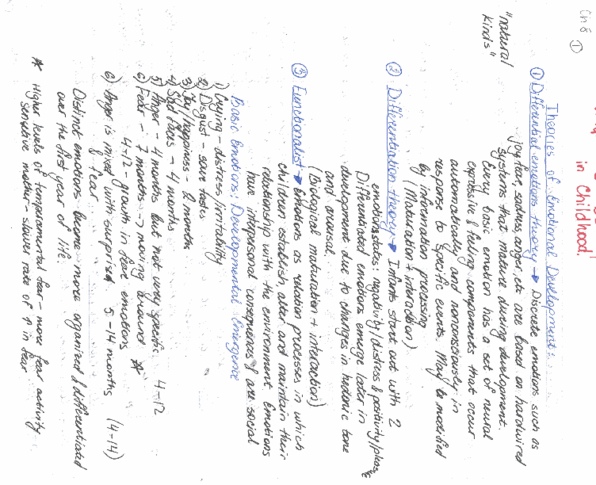 Ch 8 ①
in Childhood!
Theories of Emotional Development:
"natural kinds"
① Differential emotions theory → Discrete emotions such as
joy, fear, sadness, anger, etc are based on hardwired
systems that mature during development.
Every basic emotion has a set of neural
expressive & feeling components that occur
automatically and nonconsciously in
response to specific events. May be modified
by information processing
(Maturation + interaction)
② Differentiation theory → Infants start out with 2
emotional states: negativity/distress & positivity/pleasure
Differentiated emotions emerge later in
development due to changes in hedonic tone
and arousal.
(Biological maturation + interaction)
③ Functionalist → Emotions as relation processes in which
children establish, alter and maintain their
relationship with the environment. Emotions
have interpersonal consequences & are social
Basic Emotions: Developmental Emergence
1) Crying - distress/irritability
2) Disgust - sour tastes
3) Joy/happiness - 2 months
4) Sad faces - 4 months
5) Anger - 4 months but not very specific 4-12
6) Fear - 7 months → moving around *
4-12 - growth in fear emotions
6) Anger is mixed with surprise 5-14 months (4-14)
& fear
Distinct emotions become more organized & differentiated
over the first year of life.
* Higher levels of temperamental fear - more fear activity
sensitive mother - slower rate of ↑ in fear